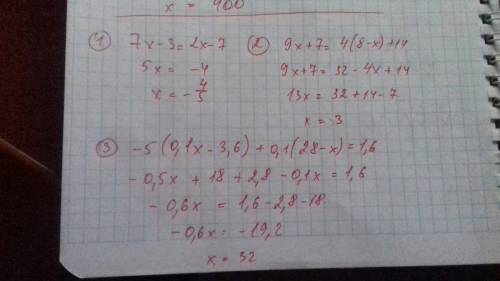 x = 400
① 7x-3=2x-7
5x = -4
x = -4/5
② 9x+7=4(8-x)+14
9x+7=32-4x+14
13x=32+14-7
x = 3
③ -5(0,1x-3,6)+0,1(28-x)=1,6
-0,5x + 18 + 2,8 - 0,1x = 1,6
-0,6x = 1,6-2,8-18
-0,6x = -19,2
x = 32